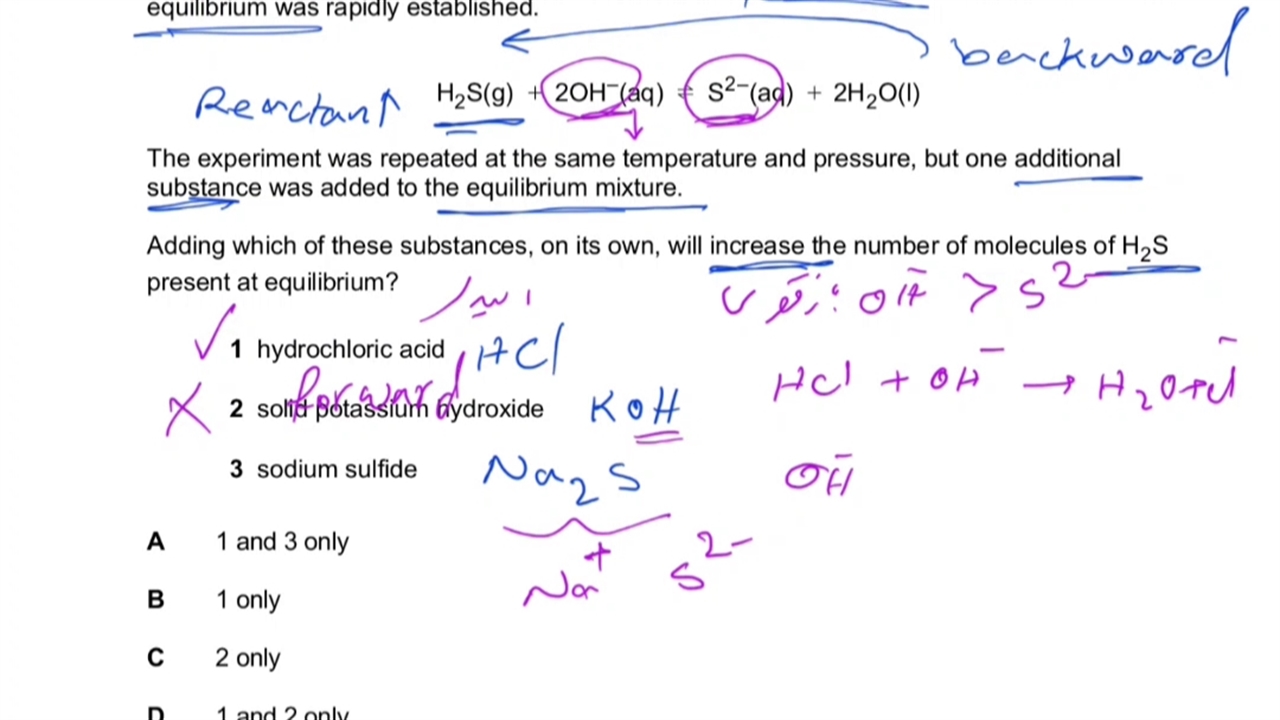 equilibrium was rapidly established.
backward
Reactant
H₂S(g) + 2OH⁻(aq) ⇌ S²⁻(aq) + 2H₂O(l)
The experiment was repeated at the same temperature and pressure, but one additional
substance was added to the equilibrium mixture.
Adding which of these substances, on its own, will increase the number of molecules of H₂S
present at equilibrium?
OH⁻ > S²⁻
1 hydrochloric acid HCl
HCl + OH⁻ → H₂O + Cl⁻
forward
2 solid potassium hydroxide KOH
3 sodium sulfide Na₂S
OH⁻
A 1 and 3 only
Na⁺ S²⁻
B 1 only
C 2 only
D 1 and 2 only